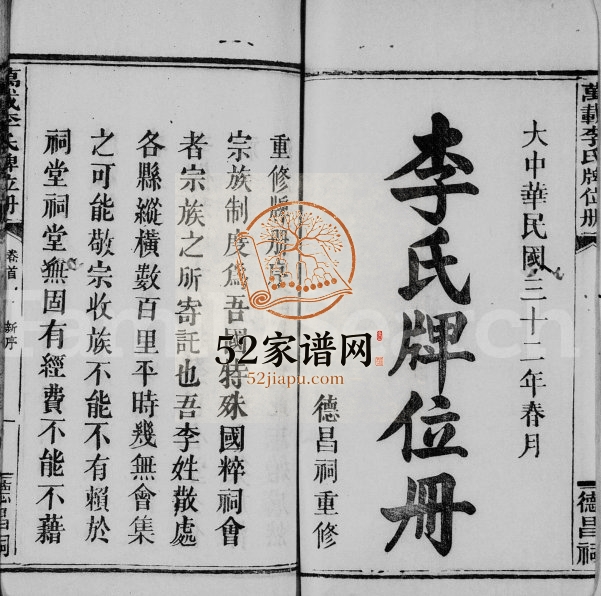 萬載李氏牌位册
德昌祠
大中華民國三十二年春月
李氏牌位册
德昌祠重修
重修牌册序
宗族制度爲吾國特殊國粹祠會
者宗族之所寄託也吾李姓散處
各縣縱横數百里平時幾無會集
之可能敬宗收族不能不有賴於
祠堂祠堂無固有經費不能不藉
萬載李氏牌位册
卷首
新序
德昌祠
52家谱网
52jiapu.com